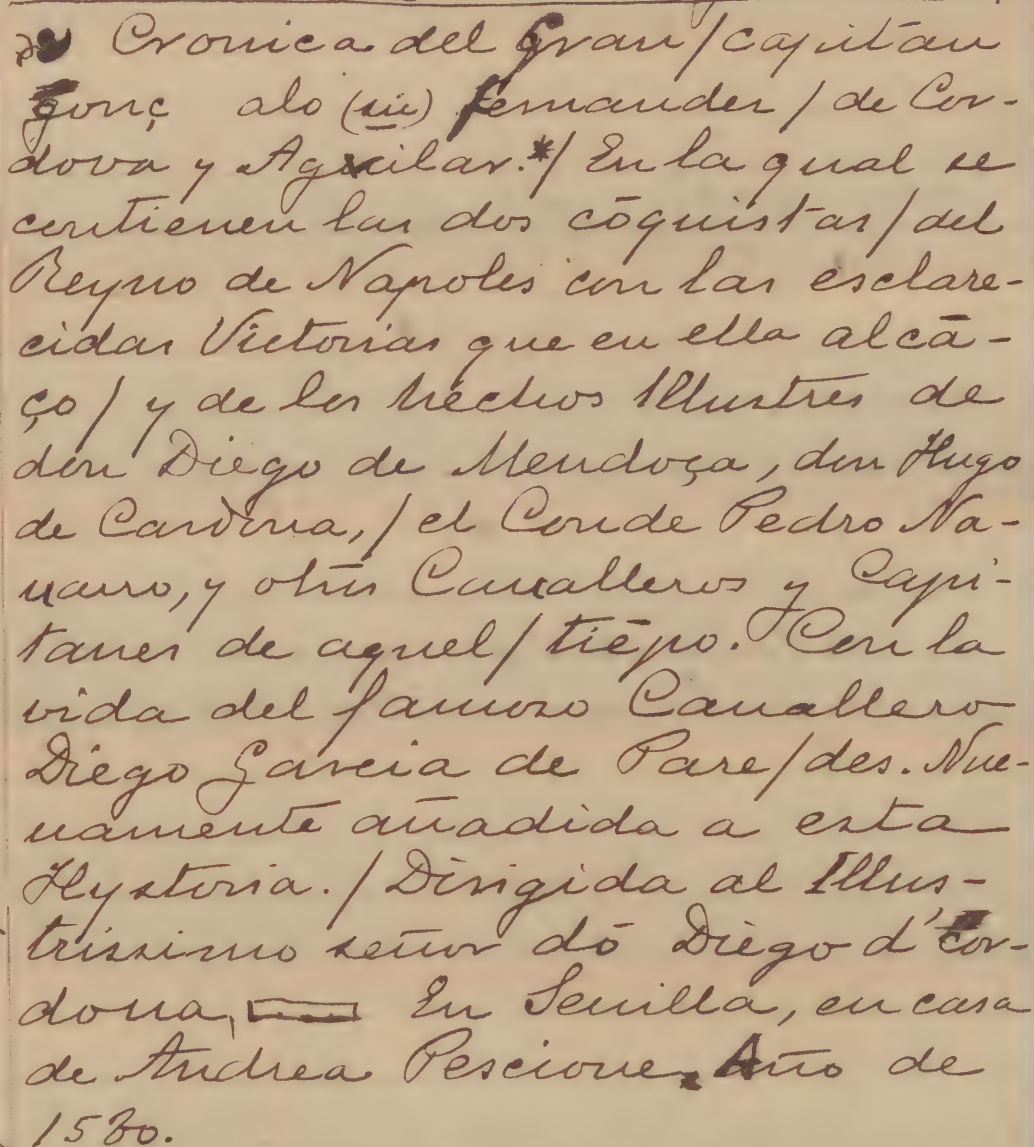 Cronica del Gran / capitan
Gonç alo (sic) fernandez / de Cor-
dova y Aguilar.* / En la qual se
contienen las dos cõquistas / del
Reyno de Napoles con las esclare-
cidas Victorias que en ella alcã-
ço / y de los hechos Illustres de
don Diego de Mendoça, don Hugo
de Cardona, / el Conde Pedro Na-
uarro, y otros Caualleros y Capi-
tanes de aquel / tiẽpo. Con la
vida del famoso Cauallero
Diego Garcia de Pare / des. Nue-
uamente añadida a esta
Hystoria. / Dirigida al Illus-
trissimo señor dõ Diego d' Cor-
doua, En Seuilla, en casa
de Andrea Pescione. Año de
1580.